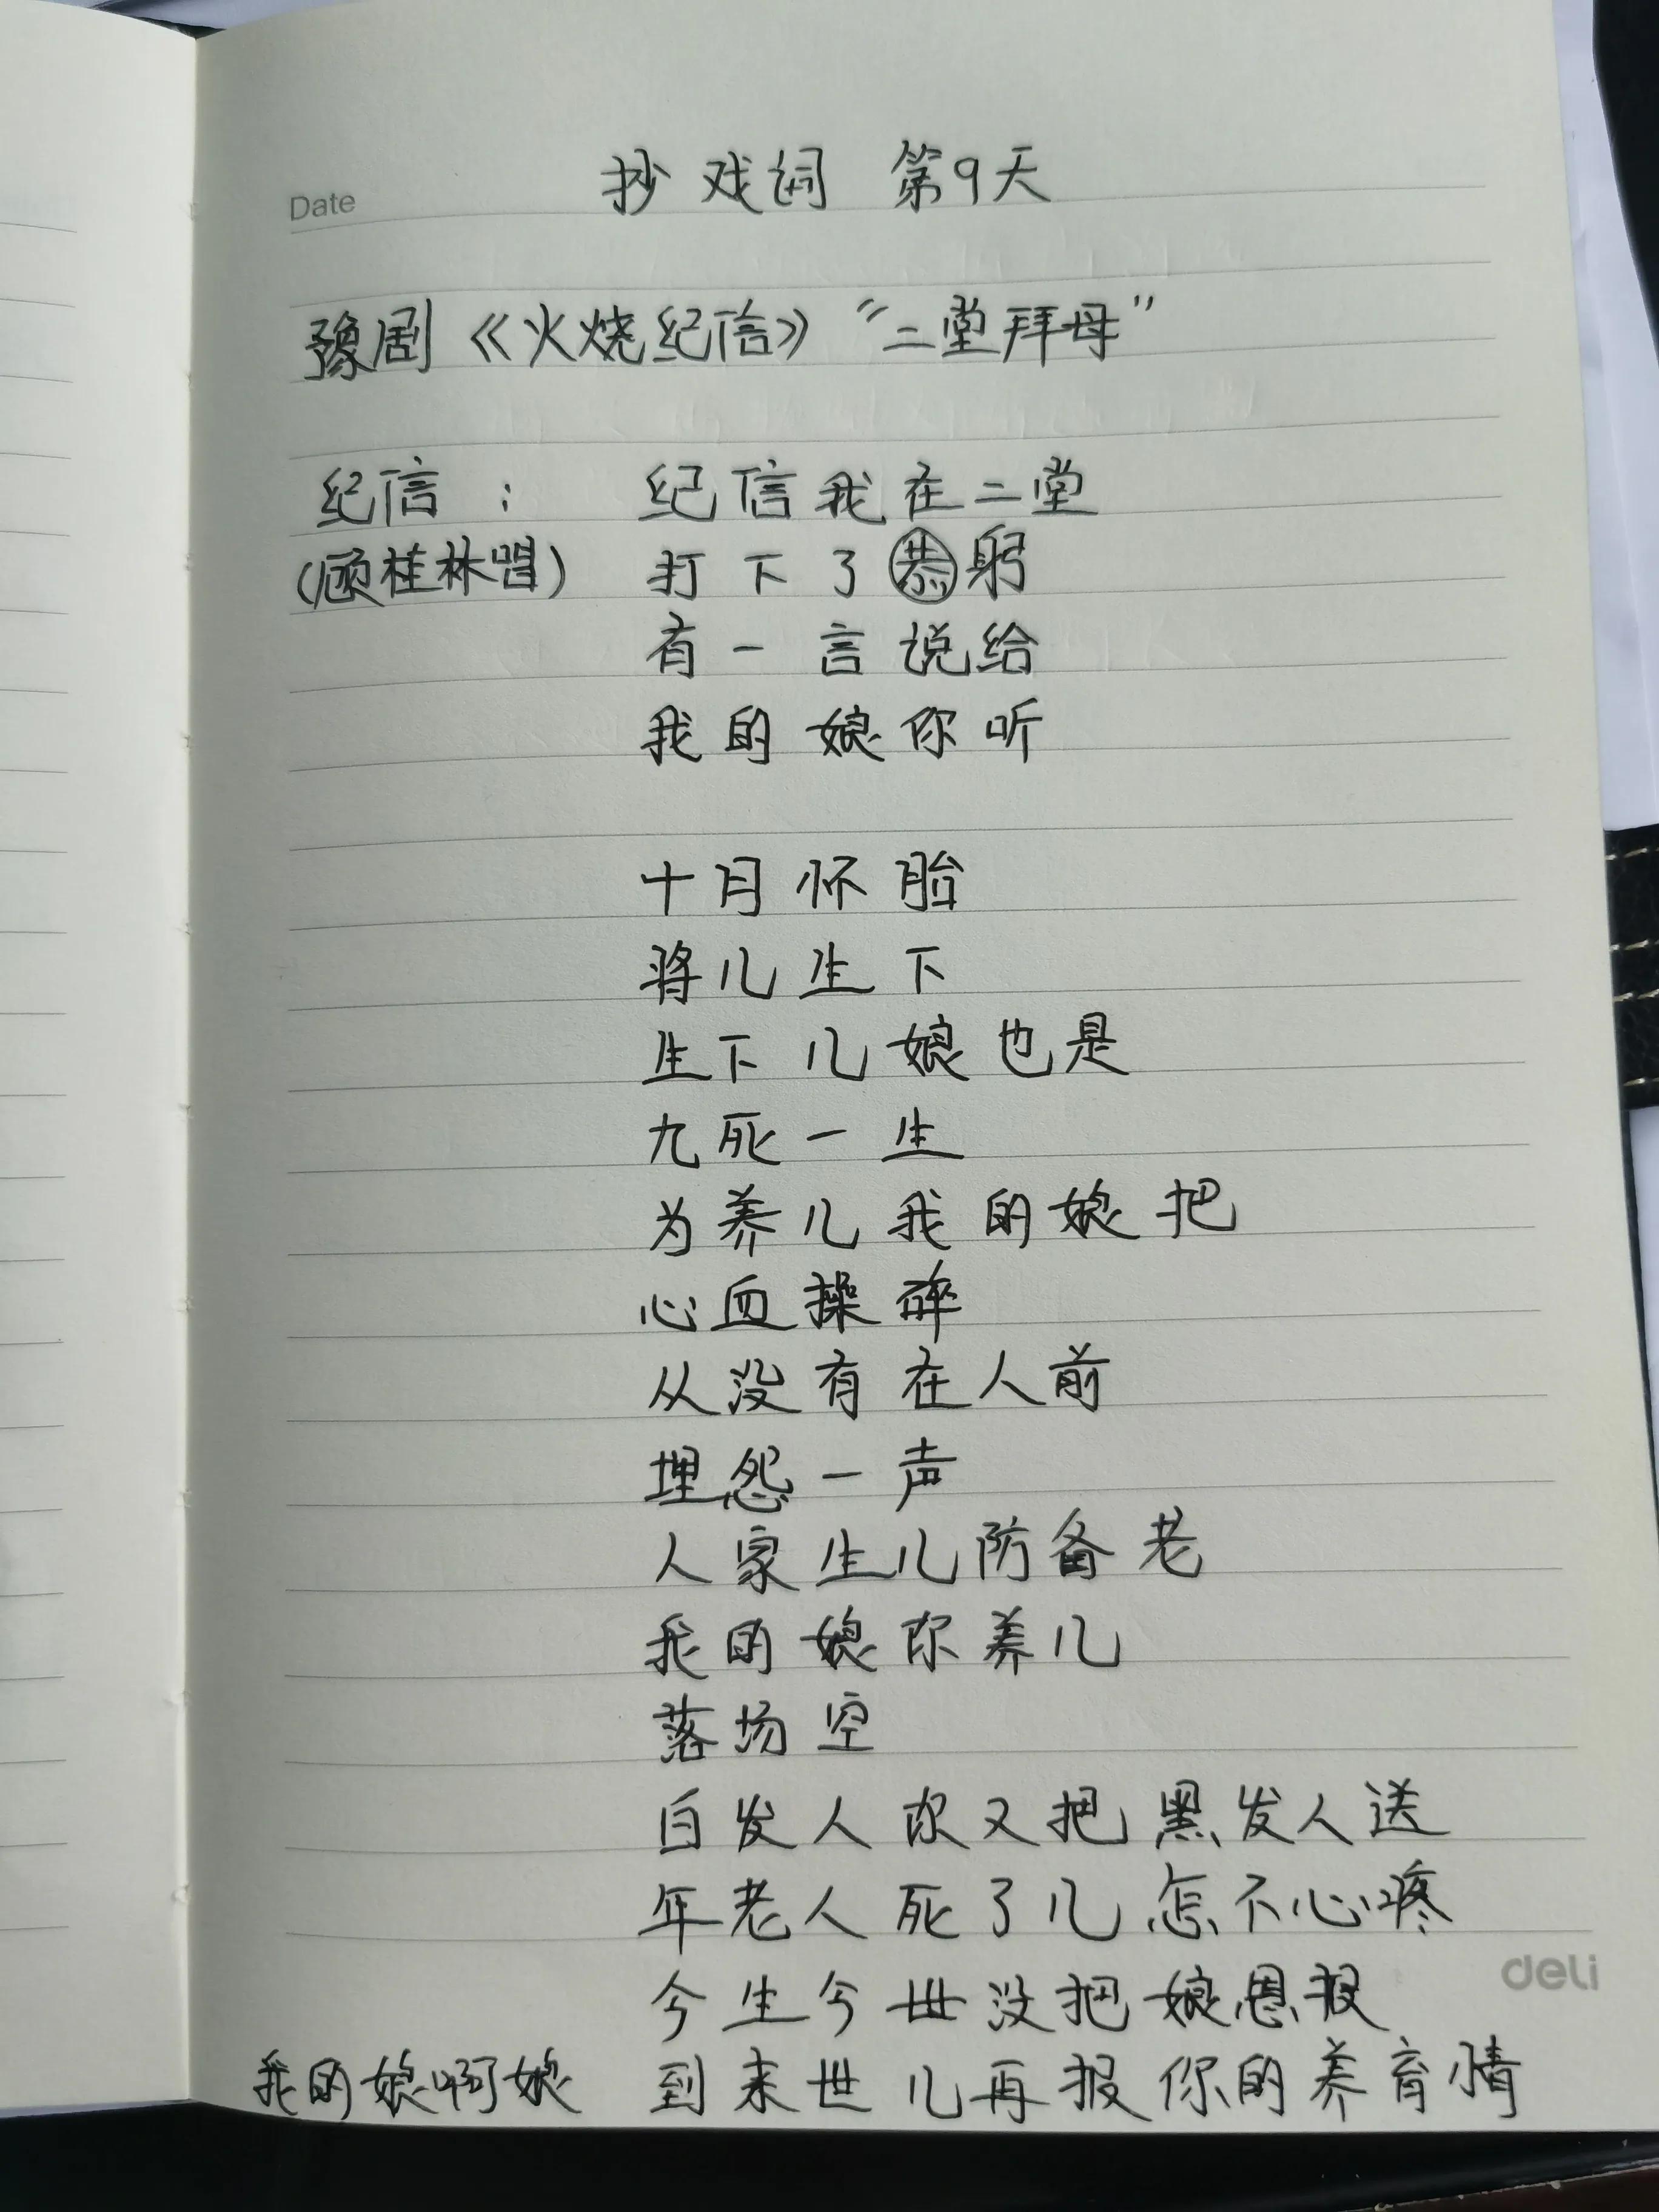 抄戏词 第9天
Date
豫剧《火烧纪信》“二堂拜母”
纪信: 纪信我在二堂
(顾桂林唱) 打下了恭躬
有一言说给
我的娘你听
十月怀胎
将儿生下
生下儿娘也是
九死一生
为养儿我的娘把
心血操碎
从没有在人前
埋怨一声
人家生儿防备老
我的娘你养儿
落场空
白发人你又把黑发人送
年老人死了儿怎不心疼
deli
今生今世没把娘恩报
我的娘啊娘 到来世儿再报你的养育情